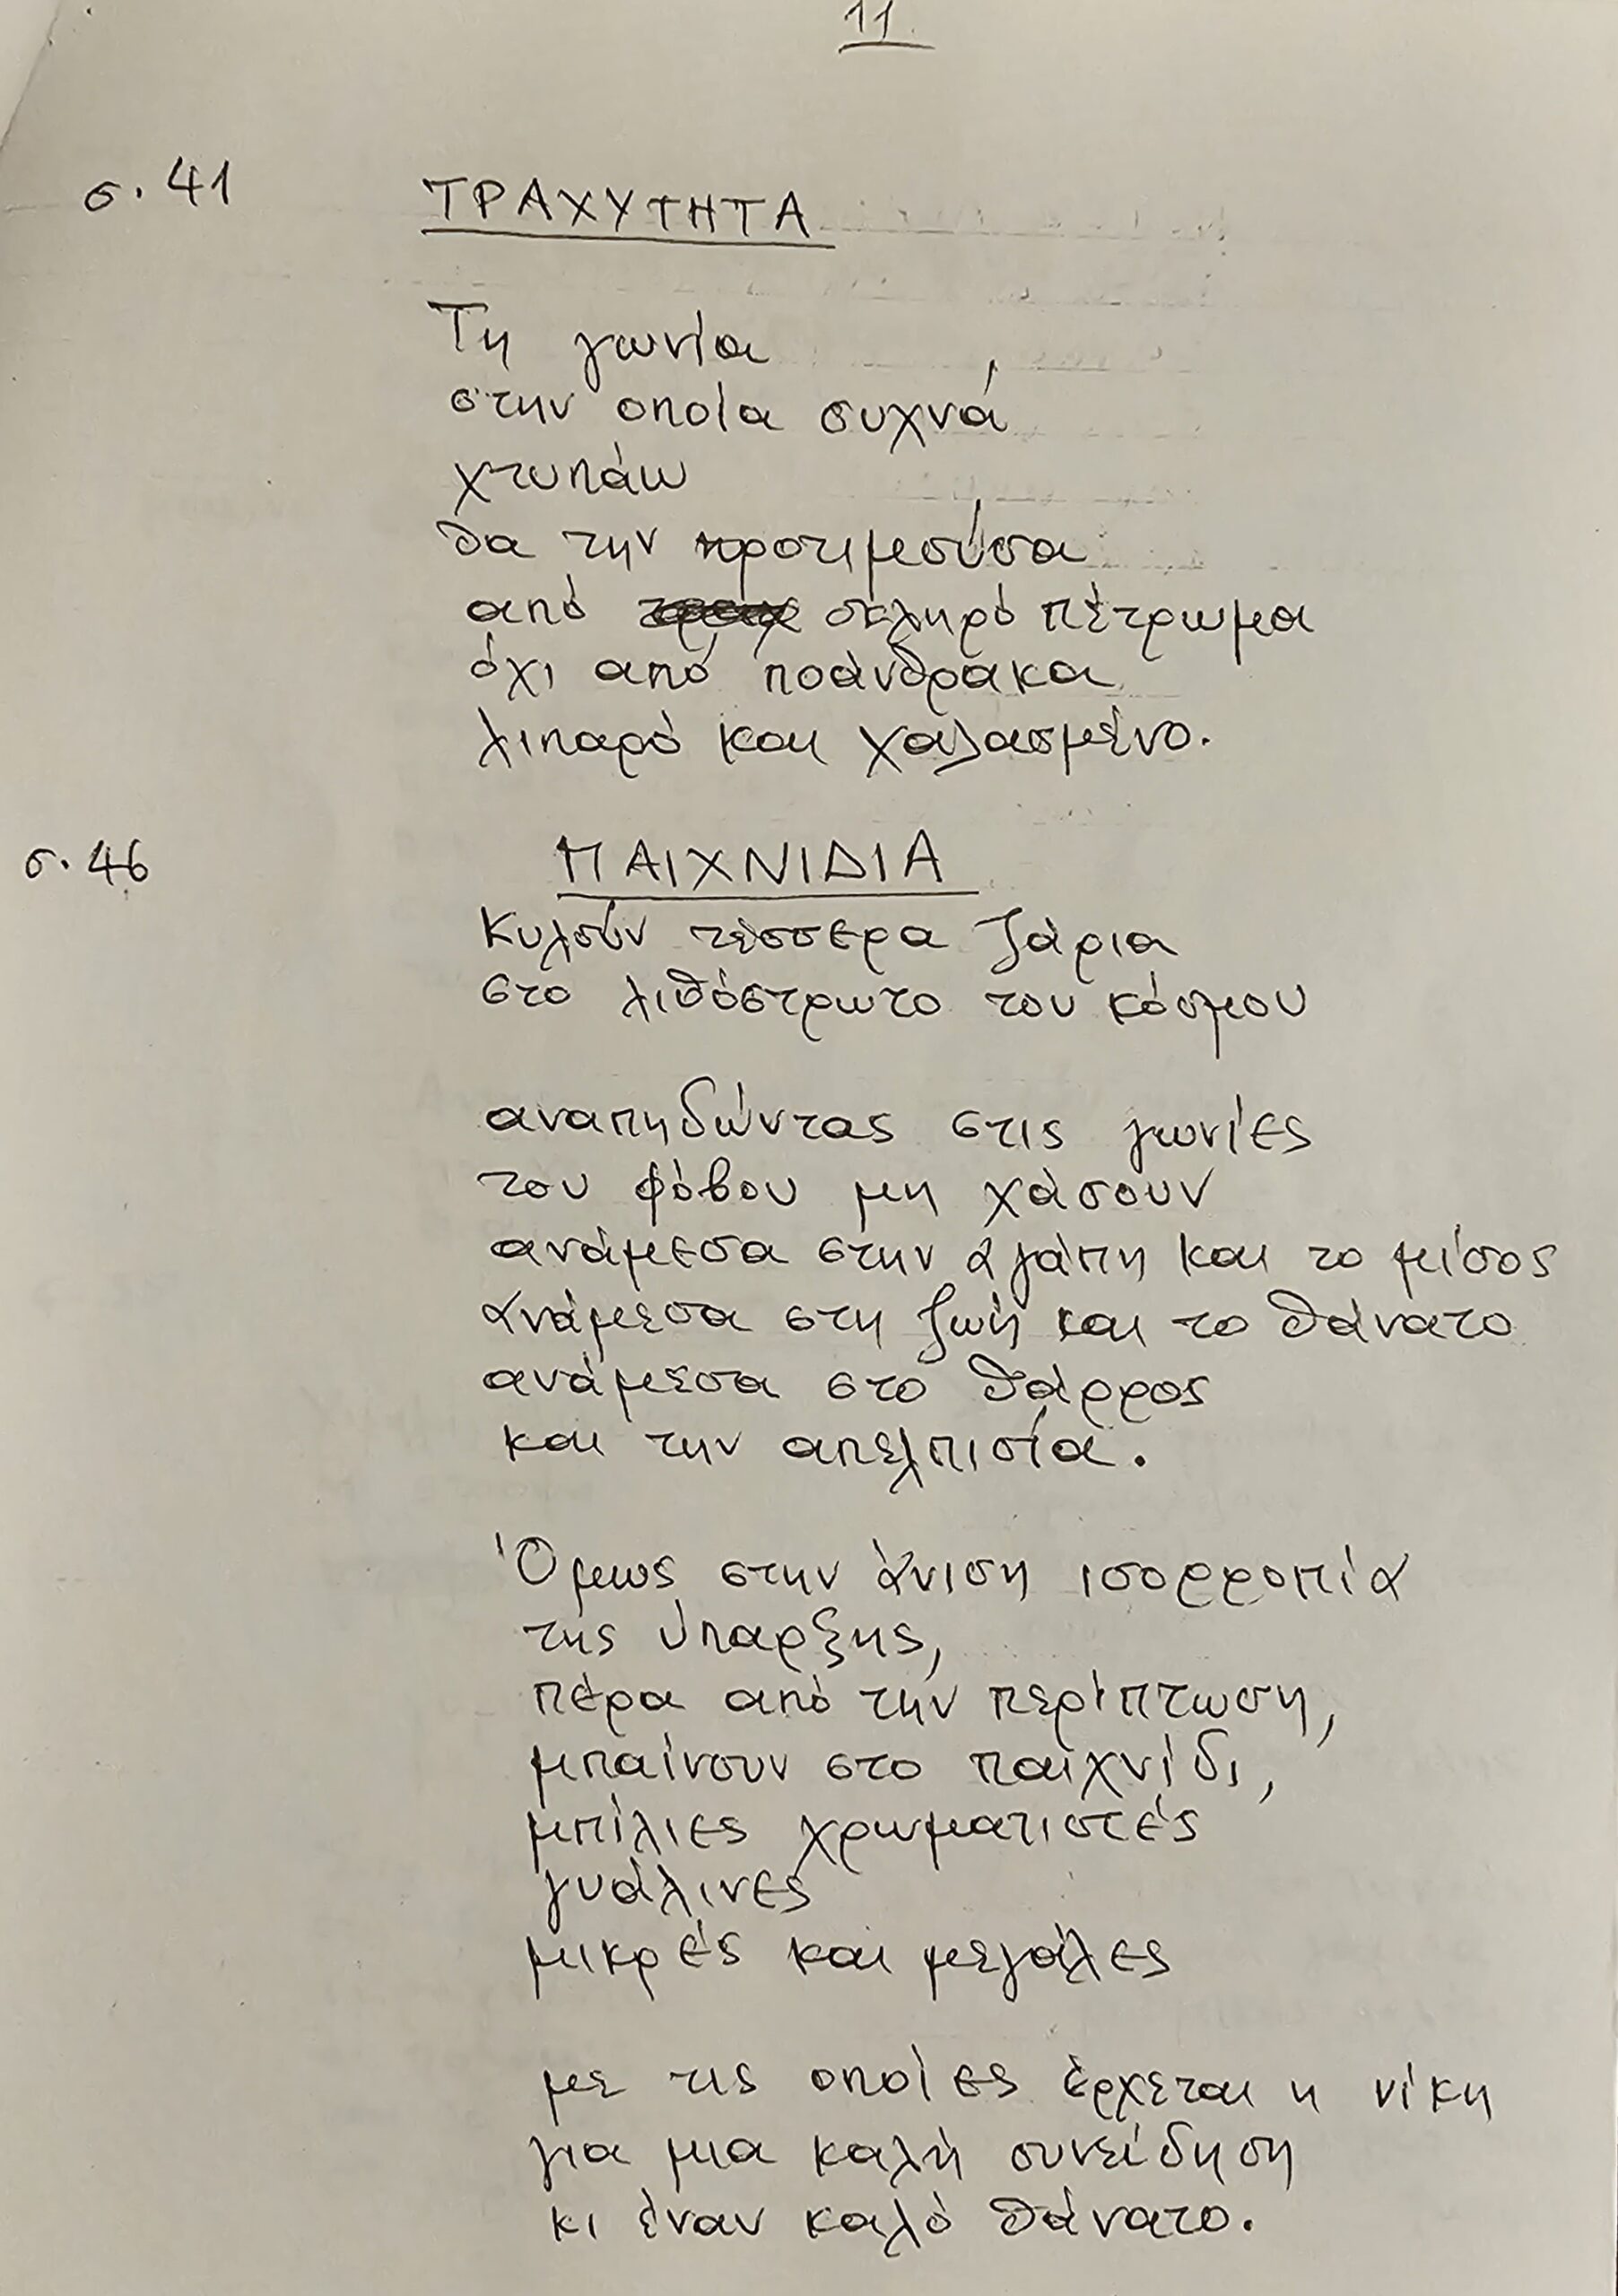 11
σ. 41 ΤΡΑΧΥΤΗΤΑ
Τη γωνία
στην οποία συχνά
χτυπάω
θα την προτιμούσα
από σκληρό πέτρωμα
όχι από ποάνθρακα
λιπαρό και χαλασμένο.
σ. 46 ΠΑΙΧΝΙΔΙΑ
Κυλούν τέσσερα ζάρια
στο λιθόστρωτο του κόσμου
αναπηδώντας στις γωνίες
του φόβου μη χάσουν
ανάμεσα στην αγάπη και το μίσος
ανάμεσα στη ζωή και το θάνατο
ανάμεσα στο θάρρος
και την απελπισία.
Όμως στην άνιση ισορροπία
της ύπαρξης,
πέρα από την περίπτωση,
μπαίνουν στο παιχνίδι,
μπίλιες χρωματιστές
γυάλινες
μικρές και μεγάλες
με τις οποίες έρχεται η νίκη
για μια καλή συνείδηση
κι έναν καλό θάνατο.